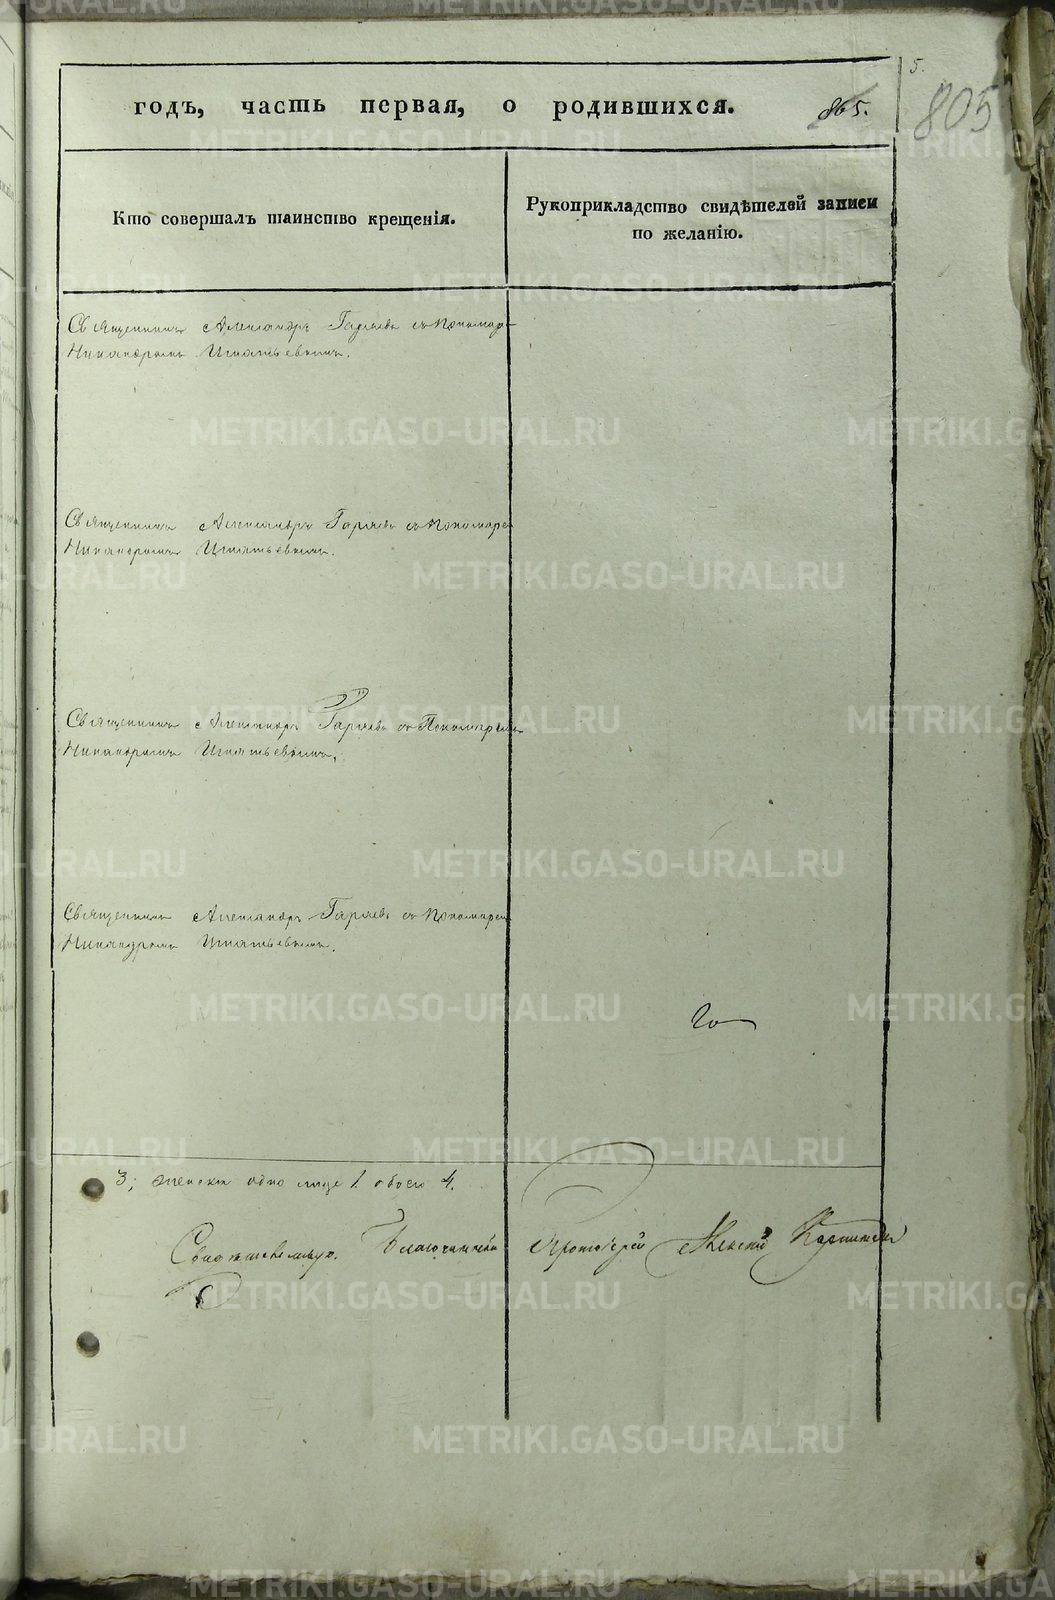 5.
805
годъ, часть первая, о родившихся. 865.
Кто совершалъ таинство крещенія.
Рукоприкладство свидѣтелей записи
по желанію.
Священникъ Александръ Гаряевъ съ Пономаре
Никандромъ Игнатьевымъ.
Священникъ Александръ Гаряевъ съ Пономаре
Никандромъ Игнатьевымъ.
Священникъ Александръ Гаряевъ съ Пономаремъ
Никандромъ Игнатьевымъ.
Священникъ Александръ Гаряевъ съ Пономарем
Никандромъ Игнатьевымъ.
3; женска одно лице 1. обоего 4.
Свидѣтельствую. Благочинный Протоіерей Алексѣй
METRIKI.GASO-URAL.RU